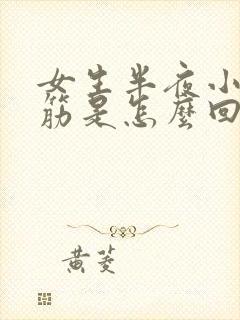 女生半夜小
筋是怎麼回
黄菱